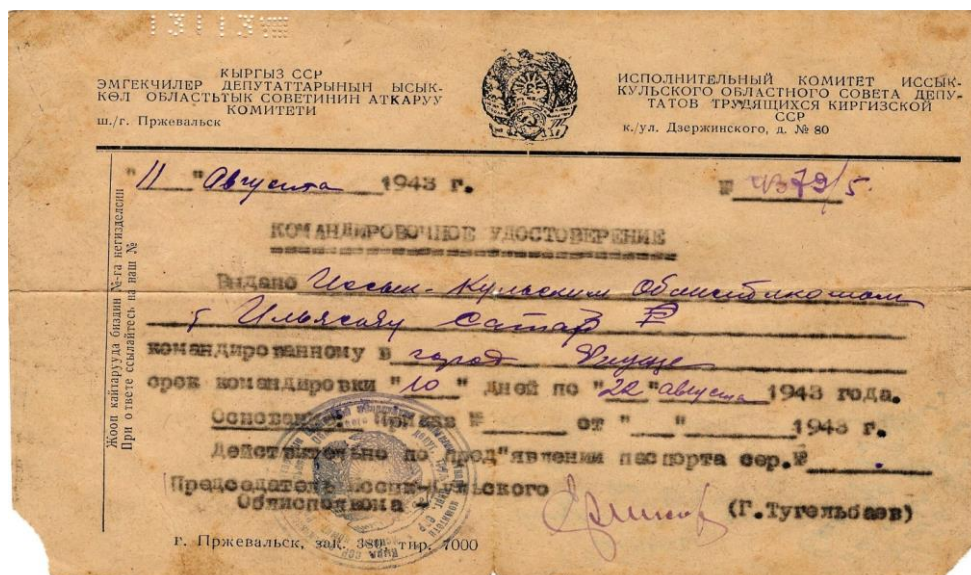 КЫРГЫЗ ССР
ЭМГЕКЧИЛЕР ДЕПУТАТТАРЫНЫН ЫСЫК-
КӨЛ ОБЛАСТЬТЫК СОВЕТИНИН АТКАРУУ
КОМИТЕТИ
ш./г. Пржевальск
ИСПОЛНИТЕЛЬНЫЙ КОМИТЕТ ИССЫК-
КУЛЬСКОГО ОБЛАСТНОГО СОВЕТА ДЕПУ-
ТАТОВ ТРУДЯЩИХСЯ КИРГИЗСКОЙ
ССР
к./ул. Дзержинского, д. № 80
Жооп кайтарууда биздин №-га негизделсин
При ответе ссылайтесь на наш №
"11" Августа 1943 г.
№ 4379/5.
КОМАНДИРОВОЧНОЕ УДОСТОВЕРЕНИЕ
Выдано Иссык-Кульским Облисполкомом
т Ильясову Сатар
командированному в город Фрунзе
срок командировки "10" дней по "22" августа 1943 года.
Основание: Приказ № от " " 1943 г.
Действительно по пред"явлении паспорта сер.№
Председатель Иссык-Кульского
Облисполкома
(Г.Тугельбаев)
г. Пржевальск, зак. 380 тир. 7000